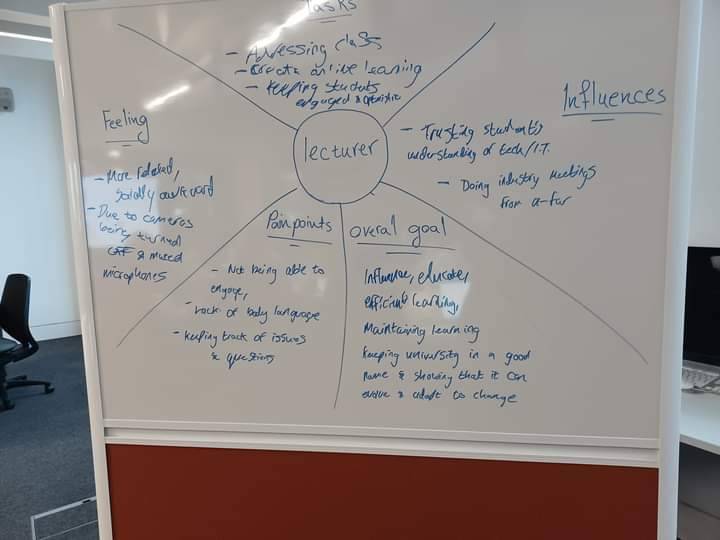 Tasks
- Adressing class
- Create online learning
- Keeping students
engaged &
Influences
- Trusting student's
understanding of tech/I.T.
- Doing industry meetings
from a-far
lecturer
Feeling
- More relaxed,
socially awkward
- Due to cameras
being turned
off & muted
microphones
Painpoints
- Not being able to
engage,
- Lack of body language
- keeping track of issues
& questions
overal goal
Influence, educate,
efficient learning,
Maintaining learning
Keeping university in a good
name & showing that it can
evolve & adapt to change